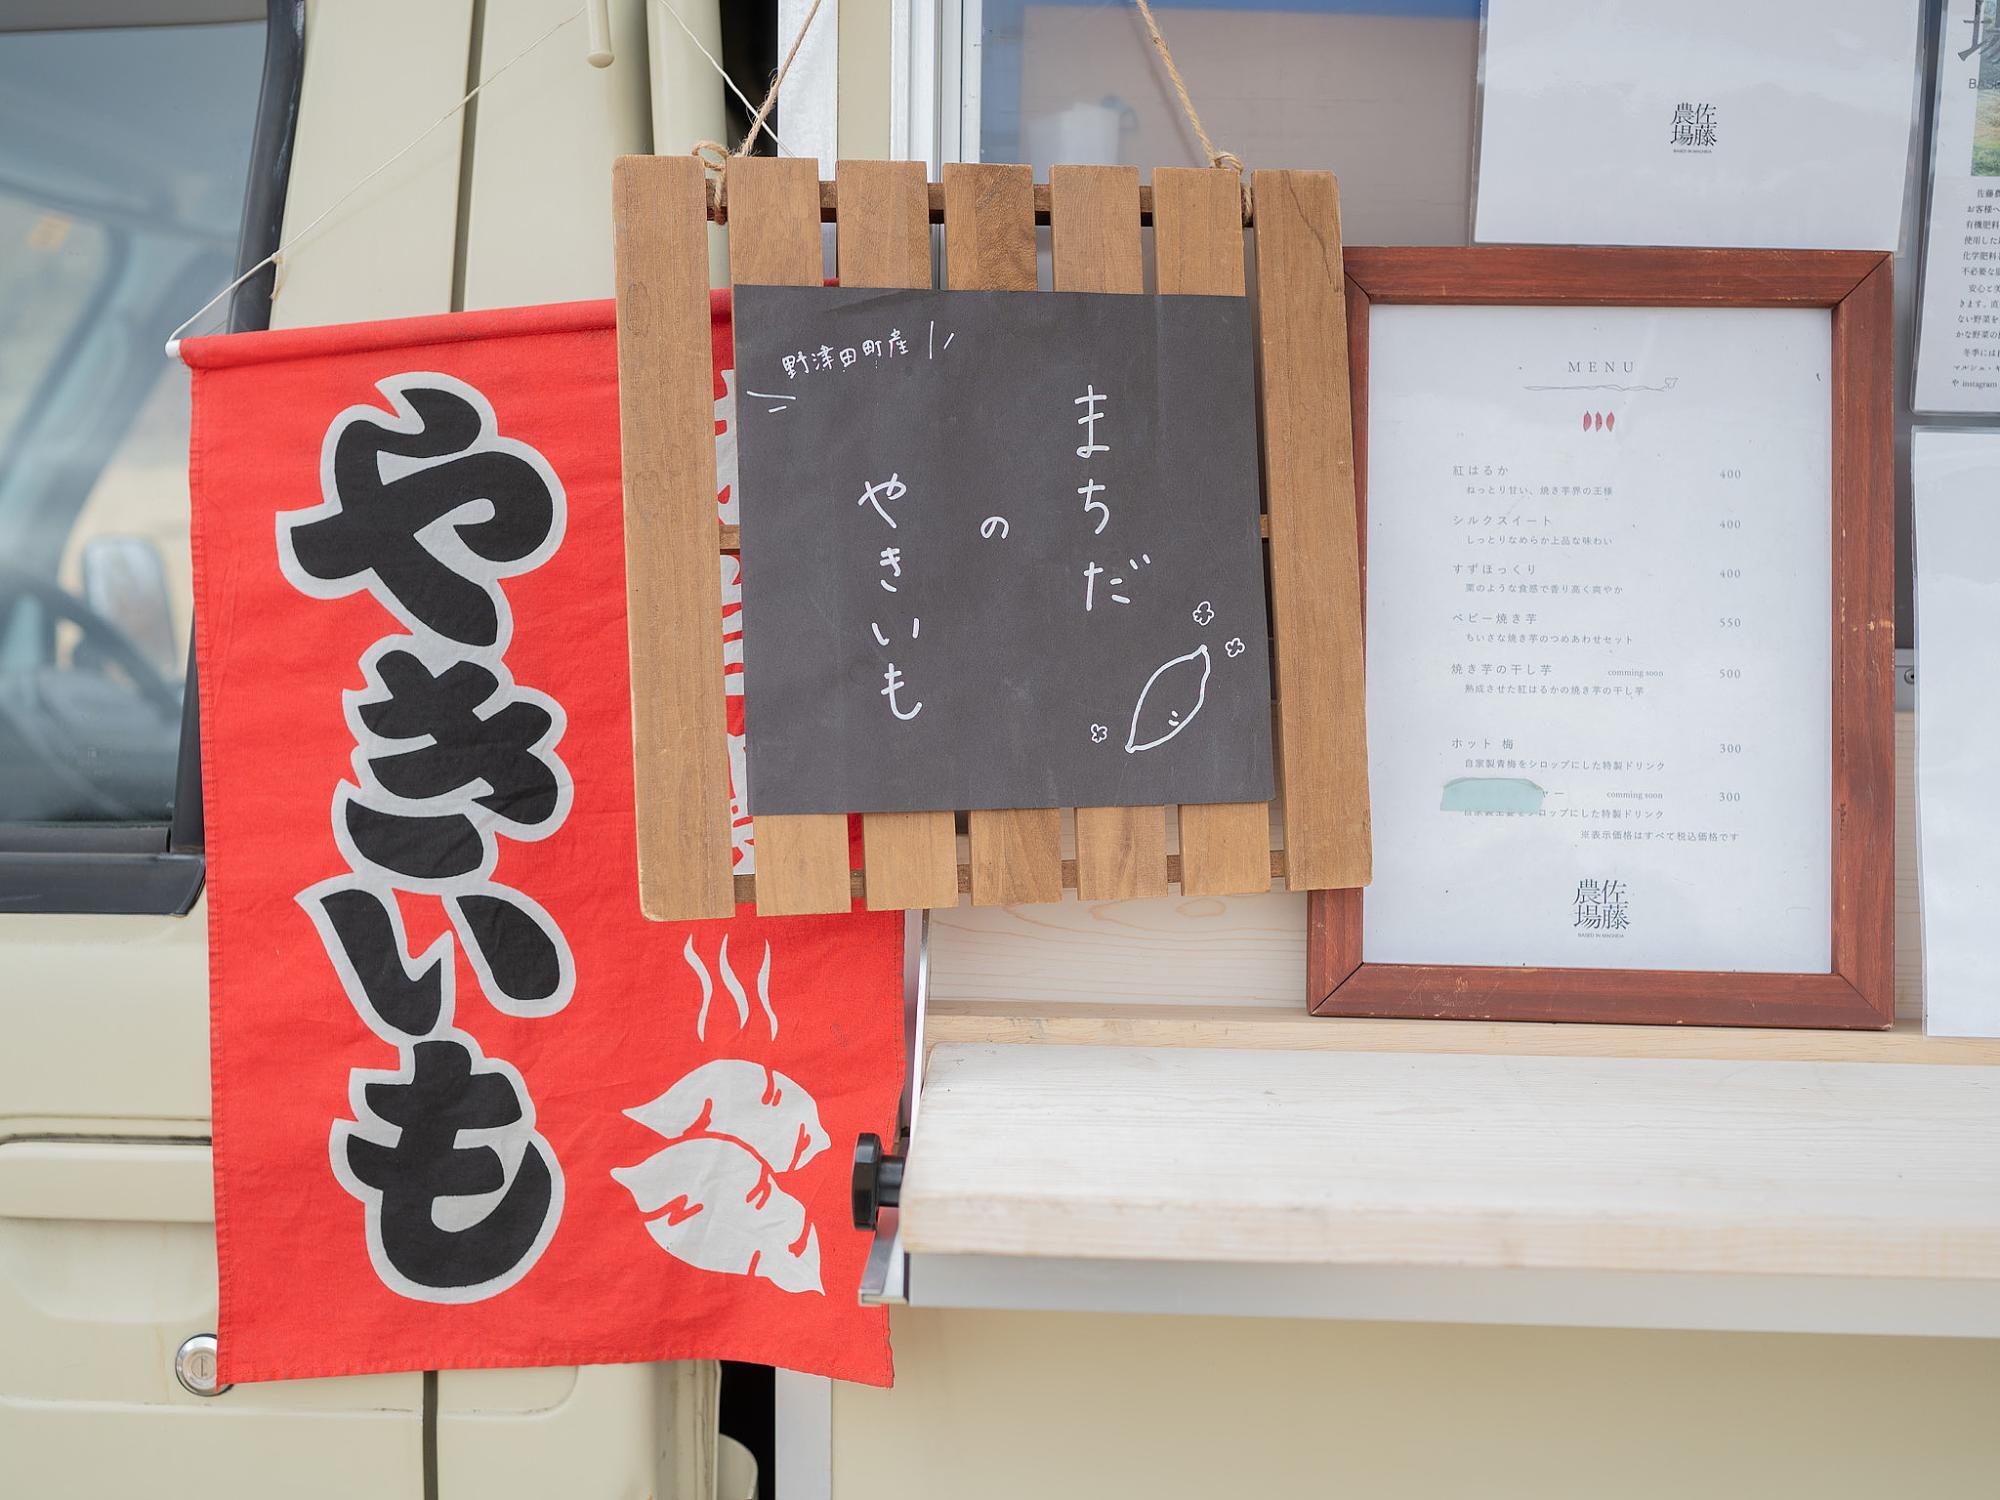 やきいも
野津田町産
まちだ
の
やきいも
MENU
紅はるか 400
ねっとり甘い、焼き芋界の王様
シルクスイート 400
しっとりなめらか上品な味わい
すずほっくり 400
栗のような食感で香り高く爽やか
ベビー焼き芋 550
ちいさな焼き芋のつめあわせセット
焼き芋の干し芋 comming soon 500
熟成させた紅はるかの焼き芋の干し芋
ホット 梅 300
自家製青梅をシロップにした特製ドリンク
ャー comming soon 300
シロップにした特製ドリンク
※表示価格はすべて税込価格です
佐藤
農場
佐藤
農場
場
お客様へ
有機肥料
化学肥料
不必要な
安心と
きます。
ない野菜を
かな野菜の
冬季には
マルシェ・
や instagram